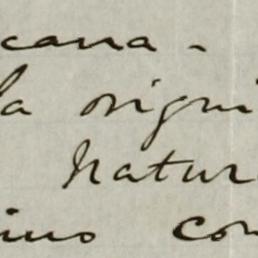 cana -
la origi
Natur
ino con